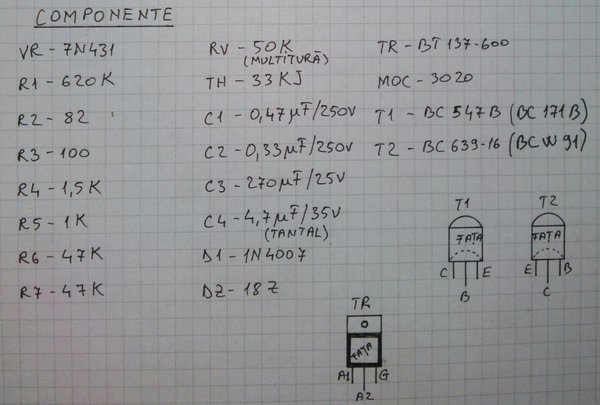 COMPONENTE
VR - 7N431
R1 - 620K
R2 - 82
R3 - 100
R4 - 1,5K
R5 - 1K
R6 - 47K
R7 - 47K
RV - 50K
(MULTITURĂ)
TH - 33KJ
C1 - 0,47µF/250V
C2 - 0,33µF/250V
C3 - 270µF/25V
C4 - 4,7µF/35V
(TANTAL)
D1 - 1N4007
DZ - 18Z
TR - BT 137-600
MOC - 3020
T1 - BC 547B (BC 171B)
T2 - BC 639-16 (BCW 91)
T1
FAȚA
C E
B
T2
FAȚA
E B
C
TR
FAȚA
A1 G
A2